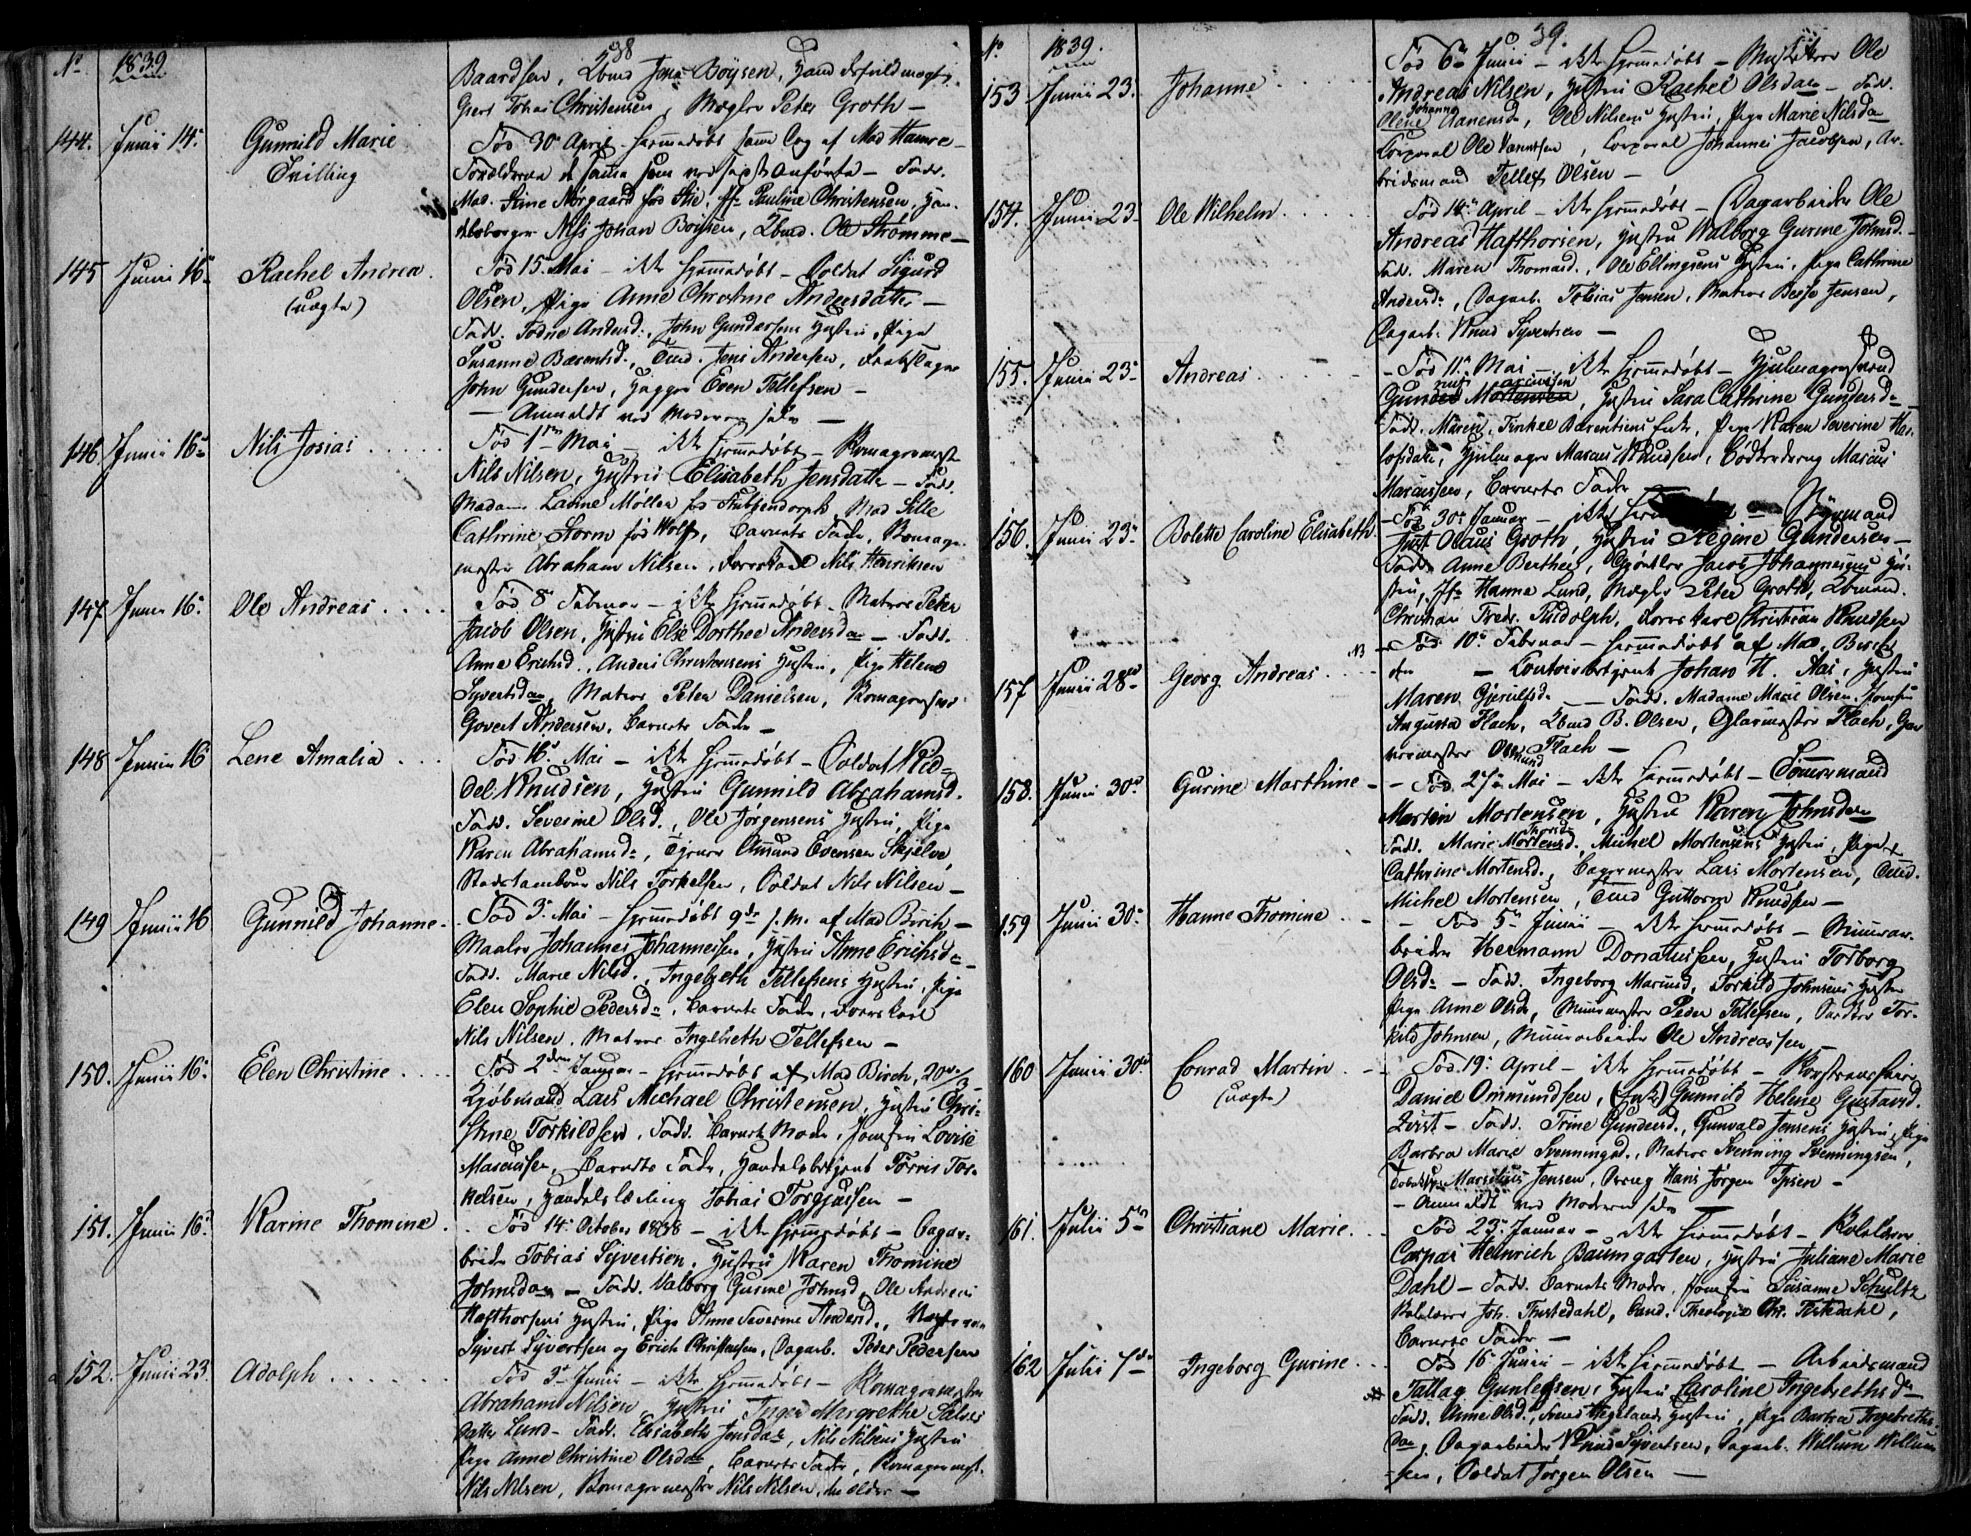 No 1839 38
Baardsen, Qbmd Jens Boysen, Handelsfuldmægtig
Giert Tobias Christensen, Mægler Peter Groth —
144. Junii 14. Gunnild Marie Tvilling
Fød 30 April hjemmedøbt samme Dag af Mad Hamre —
Forældrene de samme som ved sidst anførte — Fadd.
Mad. Stine Nørgaard fød Stie, Jfr Pauline Christensen,
Nils Johan Boysen, Qbmd. Ole Strømme —
145 Junii 16 Rachel Andrea (uægte)
Fød 15 Mai — ikke hjemmedøbt — Soldat Sigurd
Olsen, Pige Anne Christine Andersdatter —
Fadd. Todne Andersd., John Gundersens Hustru, Pige
Susanne Barentsd., Tmd. Jens Andersen,
John Gundersen, Hugger Even Tellefsen —
— Anmeldt ved Moderen selv —
146 Junii 16 Nils Josias
Fød 1ste Mai — ikke hjemmedøbt — Komagermest
Nils Nilsen, Hustru Elisabeth Jensdatter — Fadd.
Madam Lanne Møller fød, Mad Sille
Cathrine Storm fød Wolf, Barnets Fader, Komager
mester Abraham Nilsen, Nils Henriksen
147 Junii 16. Ole Andreas
Fød 8 Februar — ikke hjemmedøbt — Matros Peter
Jacob Olsen, Hustru Else Dorthee Andersda — Fadd.
Anne Erichsd., Anders Christensens Hustru, Pige Helene
Syvertsda, Matros Peter Danielsen, Komagersvend
Govert Andersen, Barnets Fader —
148 Junii 16 Lene Amalia
Fød 16 Mai — ikke hjemmedøbt — Soldat Vid=
del Knudsen, Hustru Gunnild Abrahamsd.
Fadd. Severine Olsd., Ole Jørgensens Hustru, Pige
Karen Abrahamsd., Tjener Omund Evensen Skjelve,
Stadstambour Nils Torkelsen, Soldat Nils Nilsen —
149 Junii 16 Gunnild Johanne
Fød 3 Mai — hjemmedøbt 9de s. m. af Mad Birch —
Maaler Johannes Johannessen, Hustru Anne Erichsd.
Fadd. Marie Nilsd., Ingebreth Tellefsens Hustru, Pige
Elen Sophie Pedersd., Barnets Fader,
Nils Nilsen, Matros Ingebreth Tellefsen —
150. Junii 16 Elen Christine
Fød 2den Januar — hjemmedøbt af Mad Birch, 20de/3
Kjøbmand Lars Michael Christensen, Hustru Chri=
stine Torkildsen, Fadd. Barnets Moder, Jomfru Lovise
Marcussen, Barnets Fader, Handelsbetjent Torris Tor=
kelsen, Handelslærling Tobias Torgjussen —
151. Junii 16 Karine Thomine
Fød 14 October 1838 — ikke hjemmedøbt — Dagar=
beider Tobias Syvertsen, Hustru Maren Thomine
Johnsda — Fadd. Valborg Gurine Johnsd, Ole Andreas
Hafthorsens Hustru, Pige Anne Severine Andersd.,
Syvert Syvertsen og Erich Christensen, Dagarb. Peder Pedersen
152. Junii 23 Adolph
Fød 3 Junii — ikke hjemmedøbt — Komagermester
Abraham Nilsen, Hustru Inger Margrethe Salves
datter Lund — Fadd. Elisabeth Jensda, Nils Nilsens Hustru
Pige Anne Christine Olsda, Barnets Fader, Komagermest.
Nils Nilsen, Komagermester Nils Nilsen, den ældre —
No 1839. 39.
153 Junii 23. Johanne
Fød 6 Junii — ikke hjemmedøbt — Musketeer Ole
Andreas Nilsen, Hustru Rachel Olsda — Fadd.
Johanna
Olene Aanensd, Ole Nilsens Hustru, Pige Marie Nilsda
Corporal Ole, Corporal Johannes Jacobsen, Ar=
beidsmand Tellef Olsen —
154. Junii 23 Ole Wilhelm
Fød 14 April — ikke hjemmedøbt — Dagarbeider Ole
Andreas Hafthorsen, Hustru Walborg Gurine Johnsd. —
Fadd. Maren Thomasd., Ole Ellingsens Hustru, Pige Cathrine
Andersd., Dagarb. Tobias Jensen, Matros Jensen,
Dagarb. Knud Syvertsen —
155. Junii 23 Andreas
Fød 11 Mai — ikke hjemmedøbt — Hjulmagersvend
Mortensen, Hustru Sara Cathrine Gundersd.
Fadd. Maren, Tinkel Barentsens Enke, Pige Karen Severine Her=
lofsdatter, Hjulmager Marcus Knudsen, Bødkerdreng Marcus
Marcussen, Barnets Fader —
156. Junii 23 Bolette Caroline Elisabeth
Fød 30 Januar — ikke hjemmedøbt — Styrmand
Just Olaus Groth, Hustru Regine Gundersen —
Fadd. Anne Berthea, Gjørtler Jacob Johannesens Hu=
stru, Jfr Hanna Lund, Mægler Peter Groth, Qbmand.
Christian Fredr. Rudolph, Christian Knudsen
157 Junii 28de Georg Andreas
NB — Fød 10 Februar — hjemmedøbt af Mad. Birch
den — Contoirbetjent Johan H. Aas, Hustru
Maren Gjerulfsd. — Fadd. Madame Marie Olsen, Jomfru
Augusta Flach, Qbmd B. Olsen, Glarmester Flach, Gar
vermester Omund Flach —
158. Junii 30 Gurine Marthine
Fød 27 Mai — ikke hjemmedøbt — Tømmermand
Martin Mortensen, Hustru Karen Johnsda
Fadd. Marie Mortensd., Michel Mortensens Hustru, Pige
Cathrine Mortensd., Bagermester Lars Mortensen, Tmd.
Michel Mortensen, Tmd Guttorm Knudsen —
159 Junii 30 Hanne Thomine
Fød 5 Junii — ikke hjemmedøbt — Muurar=
beider Hermann Donatussen, Hustru Torborg
Olsd. — Fadd. Ingeborg Mariusd, Torkild Johnsens Hustru
Pige Anne Olsda, Muurmester Peder Tellefsen, Tor=
kild Johnsen, Muurarbeider Ole Andreassen —
160 Junii 30 Conrad Martin (uægte)
Fød 19 April — ikke hjemmedøbt —
Daniel Ommundsen, (Enke) Gunnild Helene Gjustavsd.
Qvist — Fadd. Trine Gundersd., Gunvald Jensens Hustru, Pige
Barbra Marie Svenningsd., Matros Svenning Svenningsen,
Marselius Jensen, Dreng Hans Jørgen Ipsen —
— Anmeldt ved Moderen selv —
161. Julii 5 Christiane Marie
Fød 23 Januar — ikke hjemmedøbt —
Caspar Heinrich Baumgarten, Hustru Juliane Marie
Dahl — Fadd. Barnets Moder, Jomfru Susanne Schultz
Joh. Tistedahl, Cand. Theologiæ Chr. Tistedahl,
Barnets Fader —
162 Julii 7 Ingeborg Gurine
Fød 16 Junii — ikke hjemmedøbt — Arbeidsmand
Tallag Gunlefsen, Hustru Caroline Ingebrethsd
Fadd. Anne Olsd., Svend Hegelands Hustru, Pige Barbra Ingebreths
da, Dagarbeider Knud Syvertsen, Dagarb. Willum Willum
sen, Soldat Jørgen Olsen —